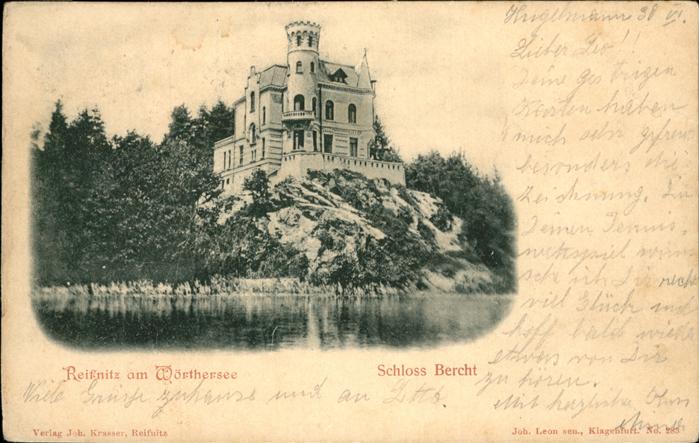 Lieber Leo!!
Deine gestrigen
Karten haben
mich sehr gefreut
besonders die
Zeichnung. Zu
Deinem Tennis-
wettspiel wün-
sche ich Dir recht
viel Glück und
hoff bald wieder
etwas von Dir
zu hören.
Mit herzliche
Reifnitz am Wörthersee
Schloss Bercht
Viele Grüsse zuhause und an Otto
Verlag Joh. Krasser, Reifnitz
Joh. Leon sen., Klagenfurt. No. 285